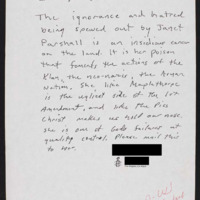 The ignorance and hatred
being spewed out by Janet
Parshall is an insidious cancer
on the land. It is her poison
that foments the actions of the
Klan, the neo-nazis, the Aryan
Nation. She like Mapplethorpe
is the ugliest side of the 1st
Amendment, and like the Piss
Christ makes us hold our nose
She is one of Gods failures at
quality control. Please mail this
to her.